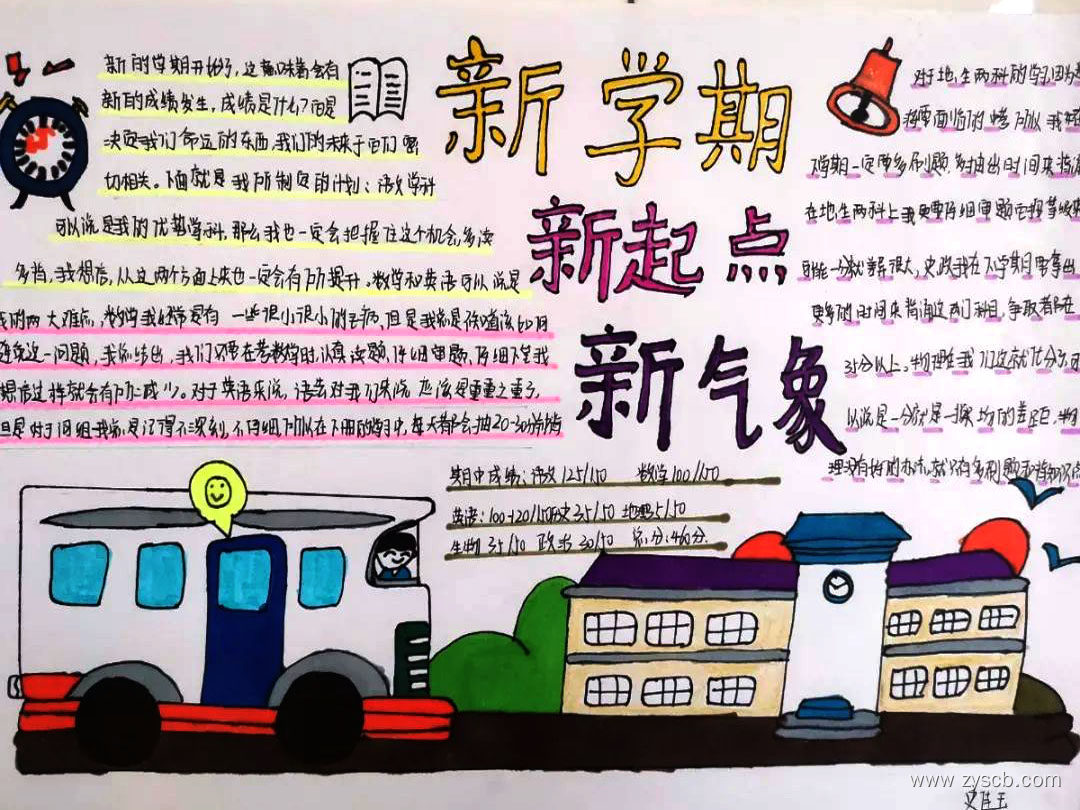 新学期
新起点
新气象
新的学期开始了,这意味着会有
新的成绩发生,成绩是什么?而是
决定我们命运的东西,我们的未来于它们密
切相关。下面就是我所制定的计划:语文学科
可以说是我的优势学科,那么我也一定会把握住这个机会,多读
多背,我相信,从这两个方面上来也一定会有所提升。数学和英语可以说是
我的两大难点,数学我经常是有一些很小很小的毛病,但是我总是
这一问题,我总结出,我们只要在考数学时,认真读题,仔细审题,仔细下笔我
相信这样就会有所减少。对于英语来说,语法对我们来说应该是重重之重了,
但是对于词组我总是记得不深刻,不仔细,所以在下册的学习中,每天都会抽20-30分钟
期中成绩:语文125/150 数学100/150
英语:100-120/150历史35/50 地理35/50
生物35/50 政治30/50 总分:460分.
对于地生两科的学习
将要面临的中考所以我
学期一定要多刷题,多抽出时间来背
在地生两科上我更要仔细审题
可能一分就差很大,史政我在下学期要拿出
更多的时间来背诵这两门科目,争取都在
35分以上。物理在我们这就
以说是一分就是一操场的差距,
理没有好的办法,就只有多刷题
www.zyscb.com